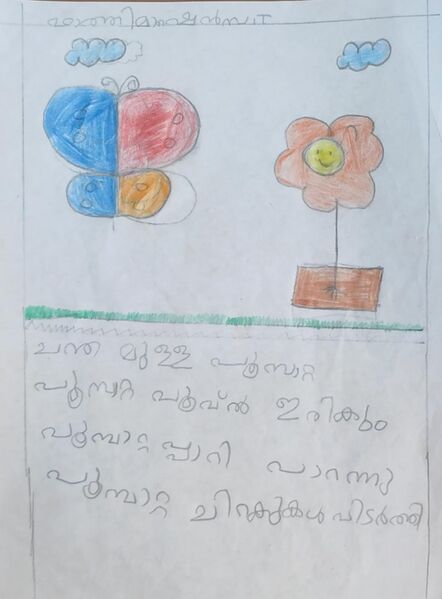 ഫാത്തിമാഷെൻസ T
ചന്ത മുള്ള പൂമ്പാറ്റ
പൂമ്പാറ്റ പൂവ്ൽ ഇരികും
പൂമ്പാറ്റ പ്പാറി പാറന്നു
പൂമ്പാറ്റ ചിറകുകൾ പിടർത്തി